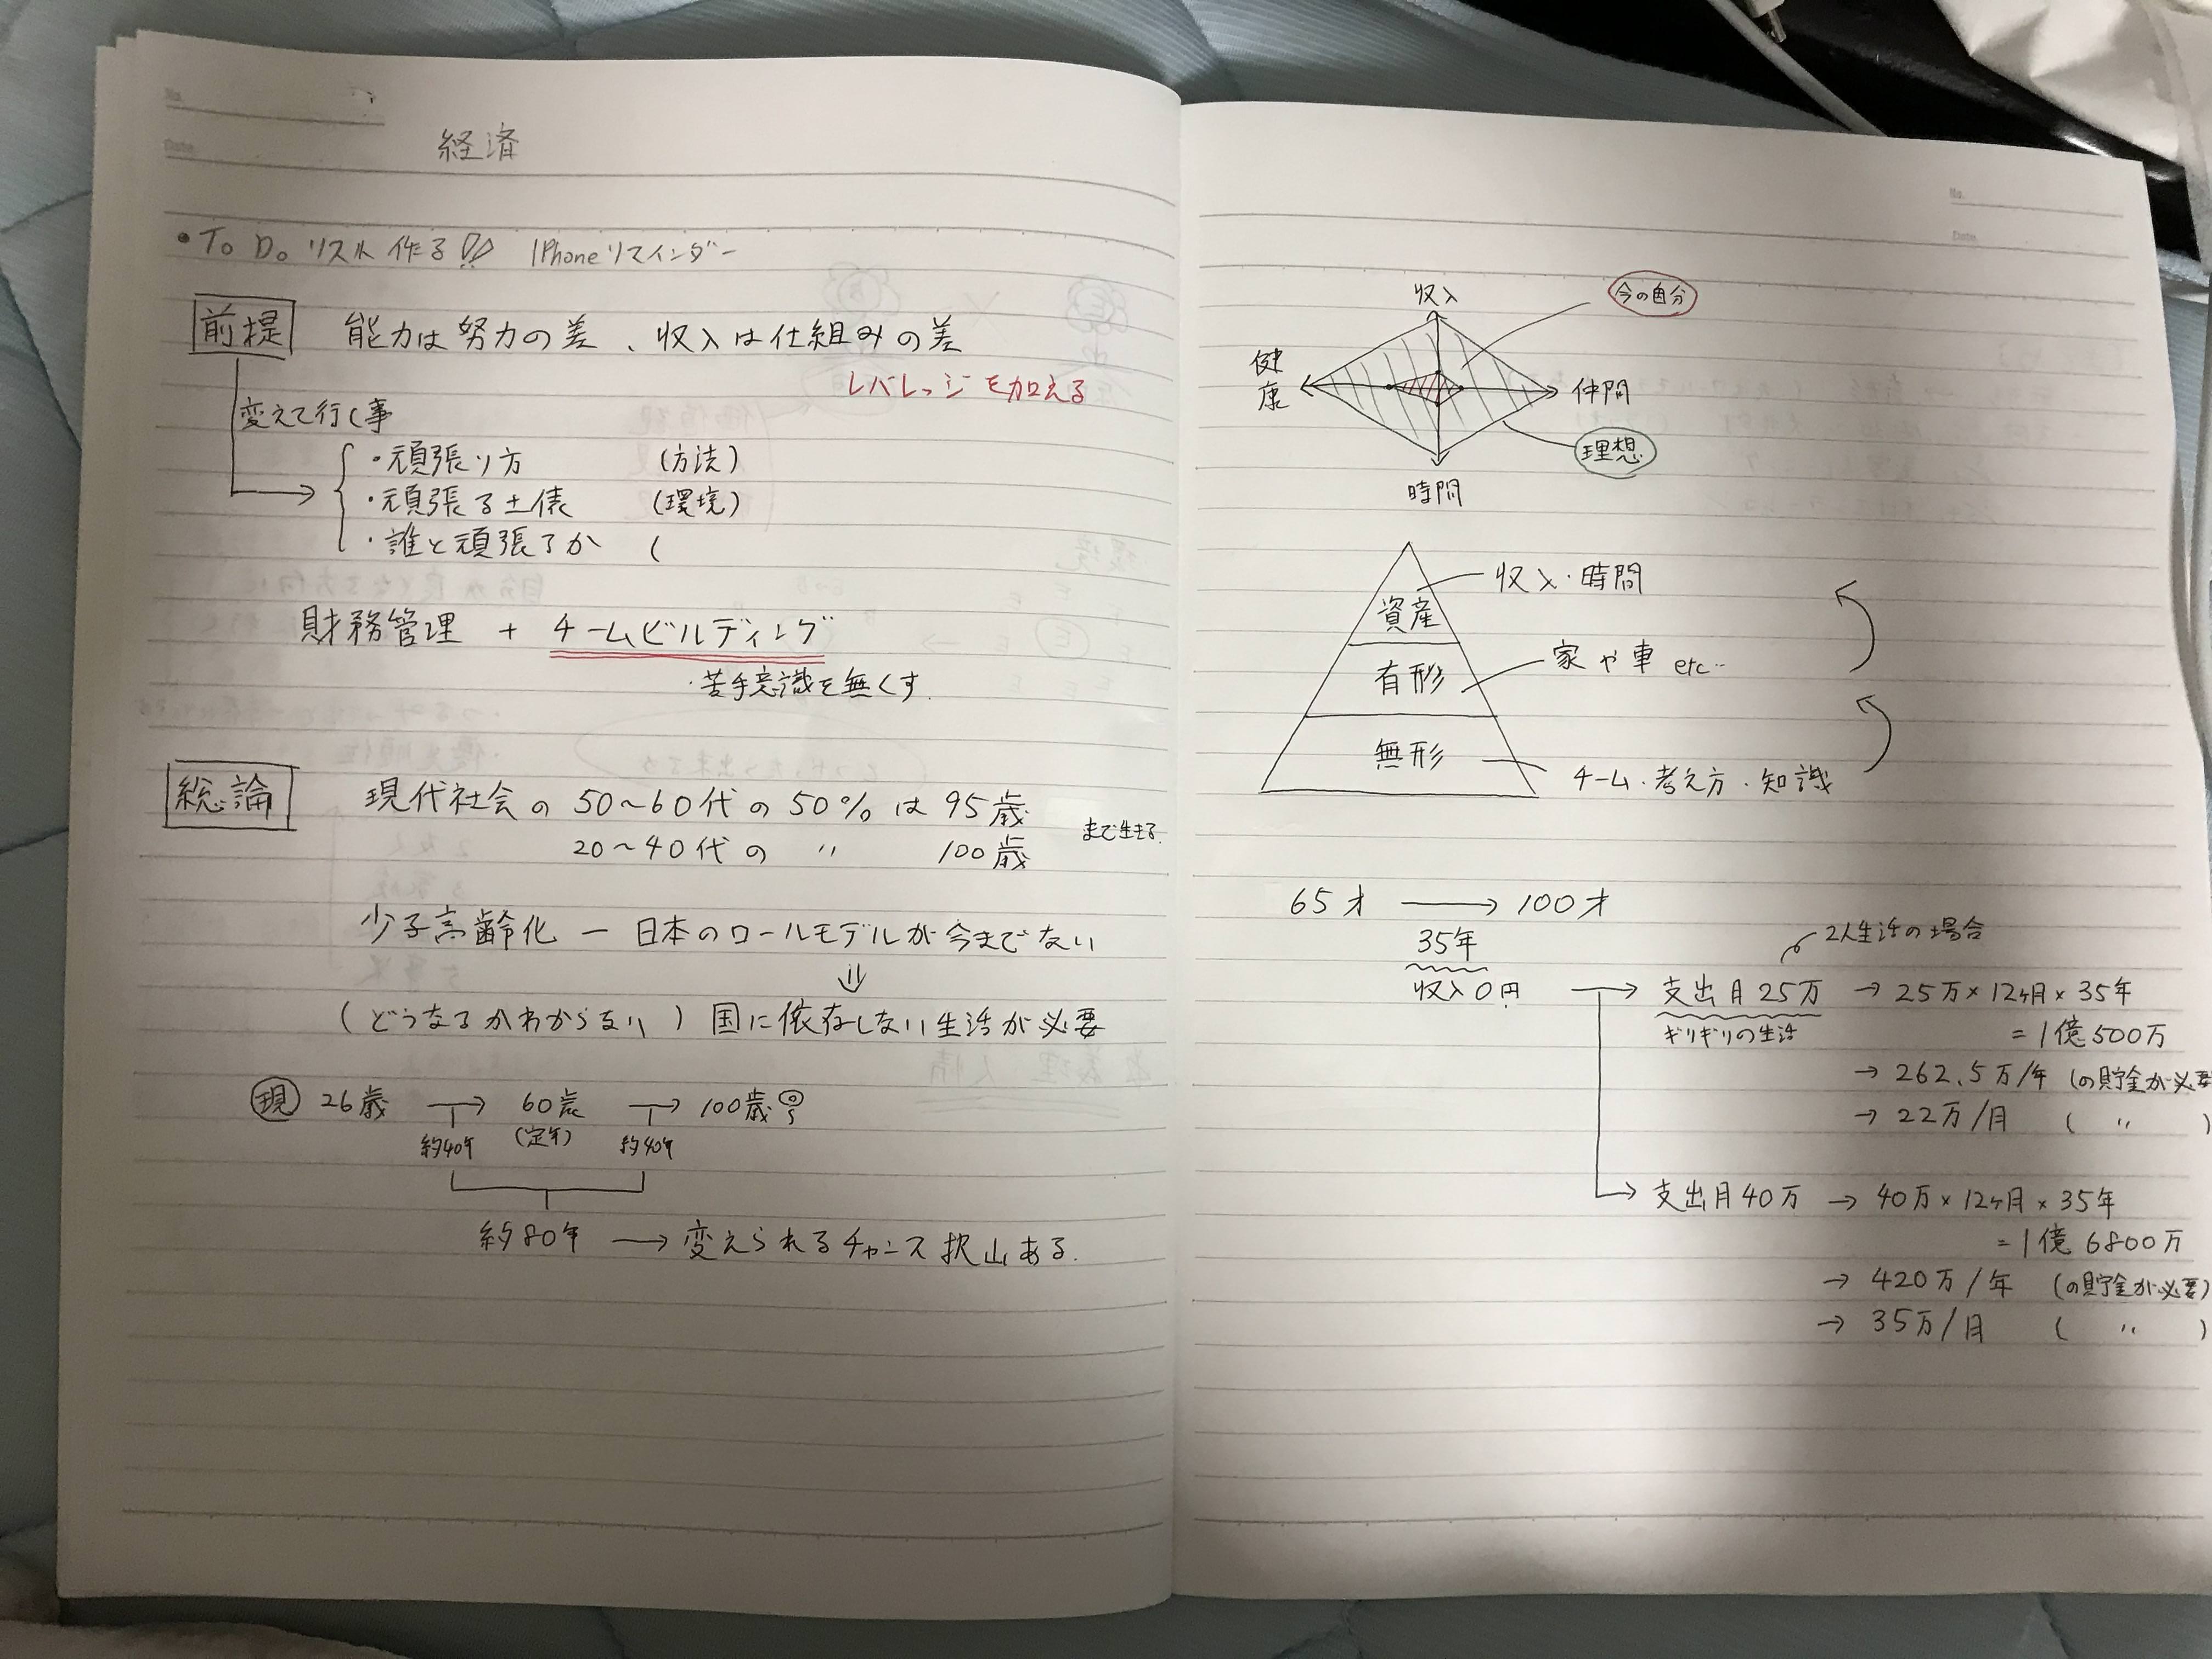 No.
Date
経済
・To Do リスト作る!! IPhoneリマインダー
前提 能力は努力の差、収入は仕組みの差
レバレッジを加える
変えて行く事
・頑張り方 (方法)
・頑張る土俵 (環境)
・誰と頑張るか (
財務管理 + チームビルディング
・苦手意識を無くす.
総論 現代社会の 50〜60代の 50% は 95歳
まで生きる.
20〜40代の 〃 100歳
少子高齢化 ー 日本のロールモデルが今までない
⇓
(どうなるかわからない) 国に依存しない生活が必要
現 26歳 → 60歳 → 100歳
約40年 (定年) 約40年
約80年 → 変えられるチャンス沢山ある.
No.
Date
収入
今の自分
健康
仲間
理想
時間
収入・時間
資産
家や車 etc…
有形
無形
チーム・考え方・知識
65才 → 100才
35年
2人生活の場合
収入0円 → 支出月25万 → 25万×12ヶ月×35年
ギリギリの生活
=1億500万
→ 262.5万/年 (の貯金が必要
→ 22万/月 ( 〃 )
→ 支出月40万 → 40万×12ヶ月×35年
=1億6800万
→ 420万/年 (の貯金が必要)
→ 35万/月 ( 〃 )